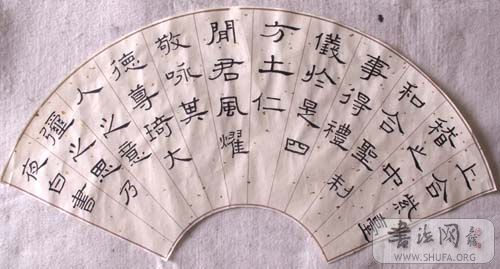 上合紫臺
稽之中
和合聖制
事得禮
儀於是四
方土仁
聞君風燿
敬咏其
德尊琦大
人之意
彌之思乃
夜白書
書法网
WWW.SHUFA.ORG